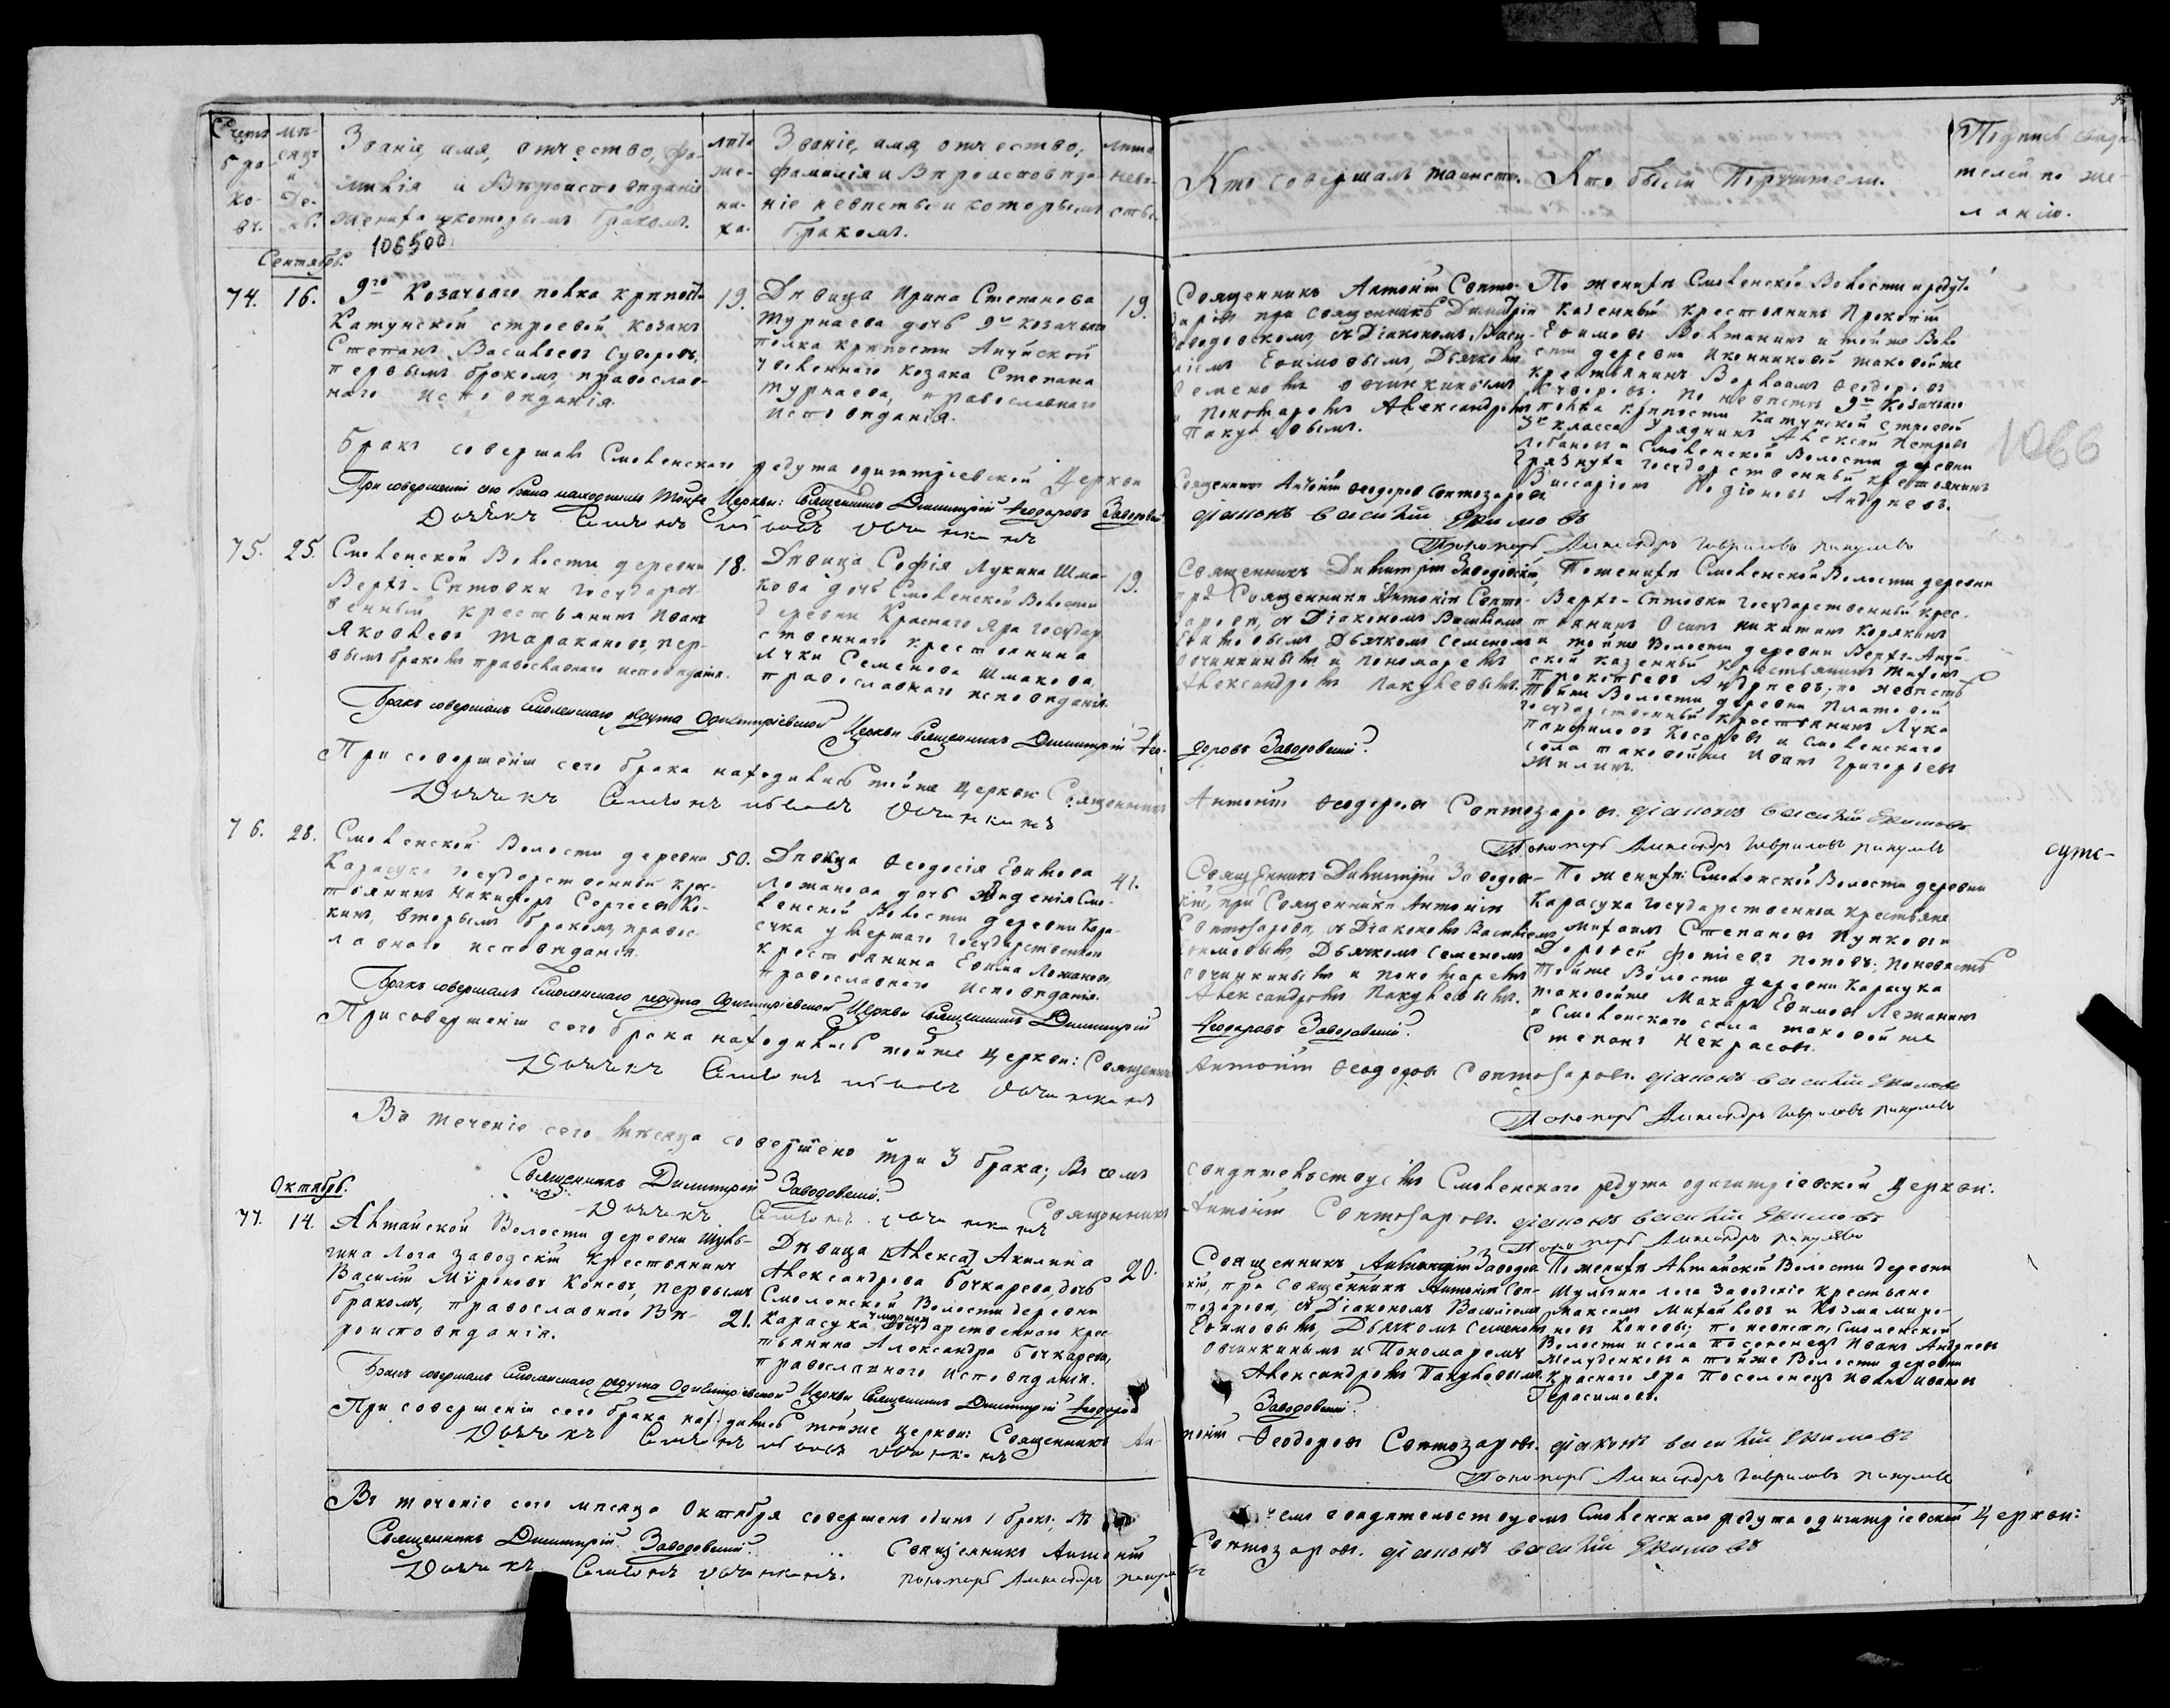 Счетъ бра- ко- въ.
мѣ- сяцъ и де- нь.
Званіе, имя, отчество, фа-
милія и Вѣроисповѣданіе
жениха и которымъ бракомъ.
лѣта же- ни- ха.
Званіе, имя, отчество,
фамилія и Вѣроисповѣда-
ніе невѣсты и которымъ
бракомъ.
лѣта невѣ- сты.
Кто совершалъ таинство.
Кто были Поручители.
Подпись свиде-
телей по же-
ланію.
106500
Сентябрь.
74. 16.
9го Козачьяго полка крѣпости
Катунской строевой козакъ
Степанъ Васильевъ Суворовъ,
первымъ бракомъ, православ-
наго исповѣданія.
19.
Дѣвица Ирина Степанова
Турнаева дочь 9го козачьяго
полка крѣпости Ануйской
Козака Степана
Турнаева, православнаго
исповѣданія.
19.
Священникъ Антоній Свѣто-
заровъ при священникѣ Димитріи
Заводовскомъ, съ Діакономъ Васи-
ліемъ Ефимовымъ, Дьячкомъ
Семеномъ Овчинкинымъ
и Пономаремъ Александромъ
Пакулевымъ.
По женихѣ Смоленской Волости редута
казенный крестьянинъ Прокопій
Ефимовъ и той же Воло
сти деревни Иконниковой таковой же
крестьянинъ Варлаамъ Феодоровъ
Суворовъ. По невѣстѣ 9го Козачьяго
полка крѣпости Катунской строевой
3го класса урядникъ Алексѣй Петровъ
Лобановъ и Смоленской Волости деревни
Грязнухи государственный крестьянинъ
Виссаріонъ Родіоновъ Андреевъ.
1066
Бракъ совершалъ Смоленскаго редута одигитріевской Церкви
Священникъ Антоній Феодоровъ Свѣтозаровъ
При совершеніи сего брака находились тойже Церкви: Священникъ Димитрій Феодоровъ Заводовскій
діаконъ Василій Ефимовъ
Дьячекъ Семенъ Овчинкинъ
Пономарь Александръ Гавриловъ Пакулевъ
75. 25.
Смоленской Волости деревни
Верхъ-Ситовки Государст-
венный крестьянинъ Иванъ
Яковлевъ Таракановъ, пер-
вымъ бракомъ православнаго исповѣданія.
18.
Дѣвица Софія Лукина Шма-
кова дочь Смоленской Волости
деревни Краснаго Яра Государ-
ственнаго крестьянина
Луки Семенова Шмакова,
православнаго исповѣданія.
19.
Священникъ Димитрій Заводовскій,
при Священникѣ Антоніи Свѣто-
заровѣ, съ Діакономъ Василіемъ
Ефимовымъ Дьячкомъ Семеномъ
Овчинкинымъ и пономаремъ
Александромъ Пакулевымъ.
По женихѣ Смоленской Волости деревни
Верхъ-Ситовки Государственный крес-
тьянинъ Осипъ Никитинъ Корякинъ
и тойже Волости деревни Верхъ-Ануй-
ской казенный крестьянинъ
Прокопьевъ Андреевъ; по невѣстѣ
Тойже Волости деревни Платовой
государственный крестьянинъ Лука
Памфиловъ Косаревъ и Смоленскаго
села таковойже Иванъ Григорьевъ
Жилинъ.
Бракъ совершалъ Смоленскаго редута Одигитріевской Церкви Священникъ Димитрій Фео-
доровъ Заводовскій.
При совершеніи сего брака находились тойже Церкви Священникъ
Антоній Феодоровъ Свѣтозаровъ. діаконъ Василій Ефимовъ
Дьячекъ Семенъ Овчинкинъ
Пономарь Александръ Гавриловъ Пакулевъ
76. 28.
Смоленской Волости деревни
Карасука государственный крес-
тьянинъ Никифоръ Сергеевъ Ко-
кинъ, вторымъ бракомъ, правос-
лавнаго исповѣданія.
50.
Дѣвица Феодосія Ефимова
Ломанова дочь Смо-
ленской Волости деревни Кара-
сука умершаго Государственнаго
крестьянина Ефима Ломанова,
православнаго исповѣданія.
41.
Священникъ Димитрій Заводов-
кій, при Священникѣ Антоніи
Свѣтозаровѣ, съ Діакономъ Василіемъ
Ефимовымъ Дьячкомъ Семеномъ
Овчинкинымъ и пономаремъ
Александромъ Пакулевымъ.
По женихѣ: Смоленской Волости деревни
Карасука Государственныя крестьяне
Михаилъ Степановъ Пупковъ и
Дорофей Фотіевъ Поповъ; по невѣстѣ
Тойже Волости деревни Карасука
таковойже Макаръ Ефимовъ Лежанинъ
и Смоленскаго села таковойже
Степанъ Некрасовъ.
Бракъ совершалъ Смоленскаго редута Одигитріевской Церкви Священникъ Димитрій
Феодоровъ Заводовскій.
При совершеніи сего брака находились тойже Церкви: Священникъ
Антоній Феодоровъ Свѣтозаровъ. діаконъ Василій Ефимовъ
Дьячекъ Семенъ Овчинкинъ
Пономарь Александръ Гавриловъ Пакулевъ
Въ теченіе сего мѣсяца совершено три 3 брака; Въ чемъ
свидѣтельствуемъ Смоленскаго редута одигитріевской церкви:
Священникъ Димитрій Заводовскій.
Священникъ Антоній Свѣтозаровъ. діаконъ Василій Ефимовъ
Дьячекъ Семенъ Овчинкинъ
Пономарь Александръ Пакулевъ
Октябрь.
77. 14.
Алтайской Волости деревни Шуль-
гина Лога заводскій Крестьянинъ
Василій Мироновъ Коневъ, первымъ
бракомъ, православнаго Вѣ-
роисповѣданія.
21.
Дѣвица [Алекса] Акилина
Александрова Бочкарева, дочь
Смоленской Волости деревни
Карасука умершаго Государственнаго крес-
тьянина Александра Бочкарева,
православнаго исповѣданія.
20.
Священникъ Заводов-
кій, при Священникѣ Антоніи Свѣ-
тозаровѣ, съ Діакономъ Василіемъ
Ефимовымъ, Дьячкомъ Семеномъ
Овчинкинымъ и Пономаремъ
Александромъ Пакулевымъ.
По женихѣ Алтайской Волости деревни
Шульгина Лога Заводскіе крестьяне
Максимъ Михайловъ и Козма Миро-
новъ Коневы; по невѣстѣ, Смоленской
Волости и села Поселенецъ Иванъ Андреевъ
и тойже Волости деревни
Краснаго Яра Поселенецъ Ивановъ
Герасимовъ.
Бракъ совершалъ Смоленскаго редута Одигитріевской Церкви Священникъ Димитрій Феодоровъ
Заводовскій.
При совершеніи сего брака находились тойже церкви: Священникъ Ан-
тоній Феодоровъ Свѣтозаровъ. діаконъ Василій Ефимовъ
Дьячекъ Семенъ Овчинкинъ
Пономарь Александръ Гавриловъ Пакулевъ
Въ теченіе сего мѣсяца Октября совершенъ одинъ 1 бракъ; Въ
чемъ свидѣтельствуемъ Смоленскаго редута одигитріевской Церкви:
Священникъ Димитрій Заводовскій.
Священникъ Антоній
Свѣтозаровъ. діаконъ Василій Ефимовъ
Дьячекъ Семенъ Овчинкинъ.
Пономарь Александръ Пакулевъ